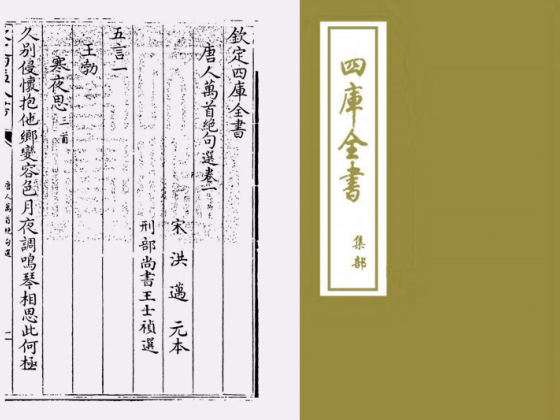 欽定四庫全書
唐人萬首絕句選卷一
宋 洪邁 元本
刑部尚書王士禎選
五言一
王勃
寒夜思三首
久別侵懷抱他鄉變容色月夜調鳴琴相思此何極
唐人萬首絕句選
一
四庫全書
集部